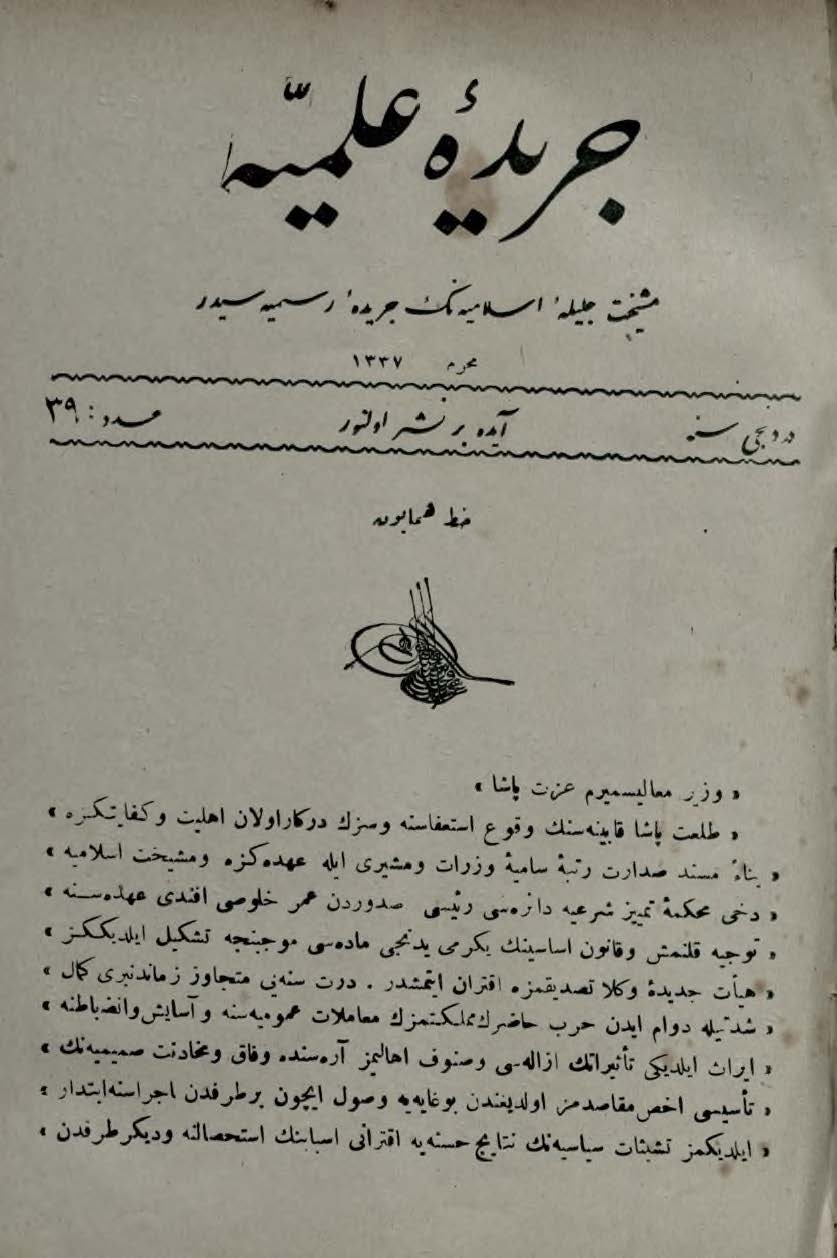 جريدۀ علميّه
مشيخت جليلۀ اسلاميه‌نك جريدۀ رسميه سيدر
محرم ١٣٣٧
دردنجى سنه
آيده بر نشر اولنور
عدد : ٣٩
خط همايون
« وزير معاليسميرم عزت پاشا »
« طلعت پاشا قابينه‌سنك وقوع استعفاسنه وسزك دركار اولان اهليت وكفايتكزه »
« بناءً مسند صدارت رتبۀ ساميۀ وزرات ومشيرى ايله عهده‌كزه ومشيخت اسلاميه »
« دخى محكمۀ تمييز شرعيه دائره‌سى رئيسى صدوردن عمر خلوصى افندى عهده‌سنه »
« توجيه قلنمش وقانون اساسينك يكرمى يدنجى ماده‌سى موجبنجه تشكيل ايلديككز »
« هيأت جديدۀ وكلا تصديقمزه اقتران ايتمشدر . درت سنه‌يى متجاوز زماندنبرى كمال »
« شدتيله دوام ايدن حرب حاضرك مملكتمزك معاملات عموميه‌سنه و آسايش وانضباطنه »
« ايراث ايلديكى تأثيراتك ازاله‌سى وصنوف اهاليمز آره‌سنده وفاق ومخادنت صميميه‌نك »
« تأسيسى اخص مقاصدمز اولديغندن بو غايه‌يه وصول ايچون بر طرفدن اجراسنه ابتدار »
« ايلديكمز تشبثات سياسيه‌نك نتايج حسنه‌يه اقترانى اسبابنك استحصالنه وديكر طرفدن »